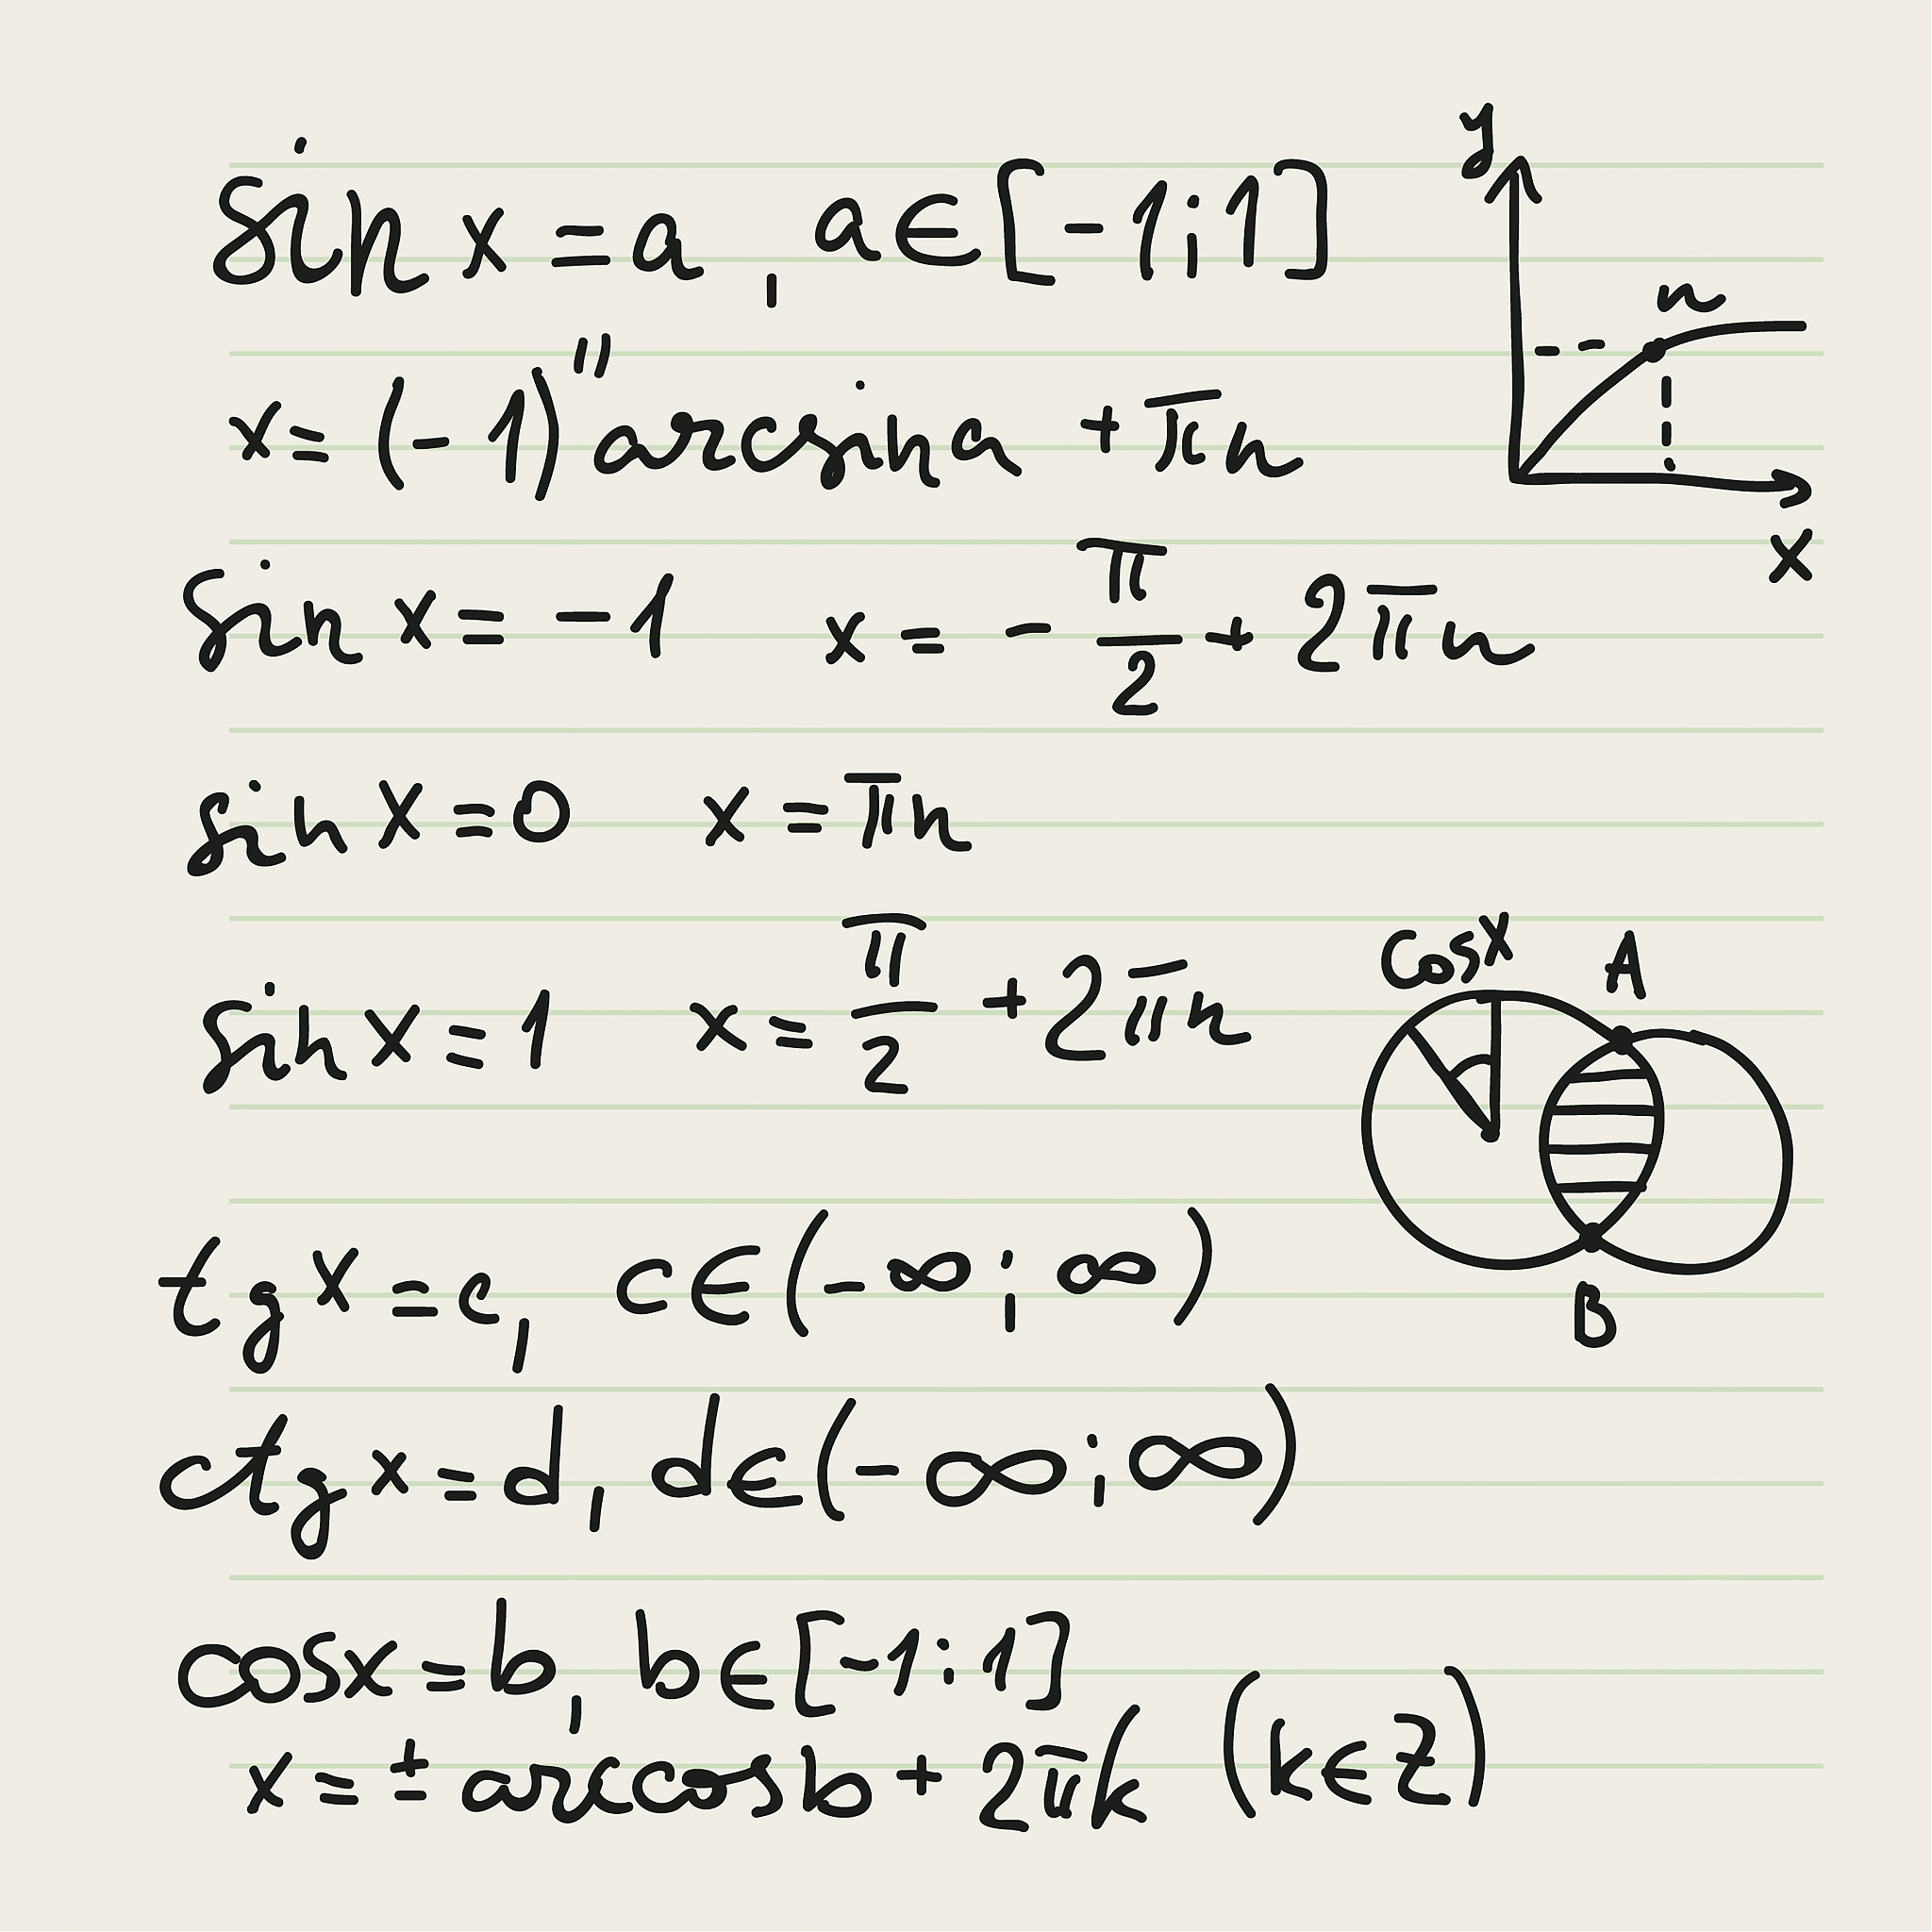 sin x = a, a∈[-1;1]
x = (-1)" arcsin a + πn
sin x = -1 x = -π/2 + 2πn
sin x = 0 x = πn
sin x = 1 x = π/2 + 2πn
tg x = c, c∈(-∞;∞)
ctg x = d, d∈(-∞;∞)
cosx = b, b∈[-1;1]
x = ± arccosb + 2πk (k∈Z)
y
n
x
Cosx A
B